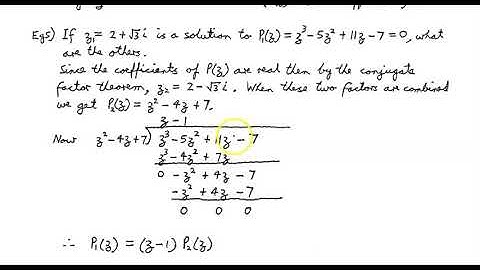 Eg5) If z₁ = 2+√3 i is a solution to P₁(z) = z³-5z²+11z-7=0, what
are the others.
Since the coefficients of P(z) are real then by the conjugate
factor theorem, z₂ = 2-√3 i. When these two factors are combined
we get P₂(z) = z² - 4z + 7.
z - 1
Now z²-4z+7) z³ - 5z² + 11z - 7
z³ - 4z² + 7z
0 - z² + 4z - 7
- z² + 4z - 7
0 0 0
∴ P₁(z) = (z-1) P₂(z)